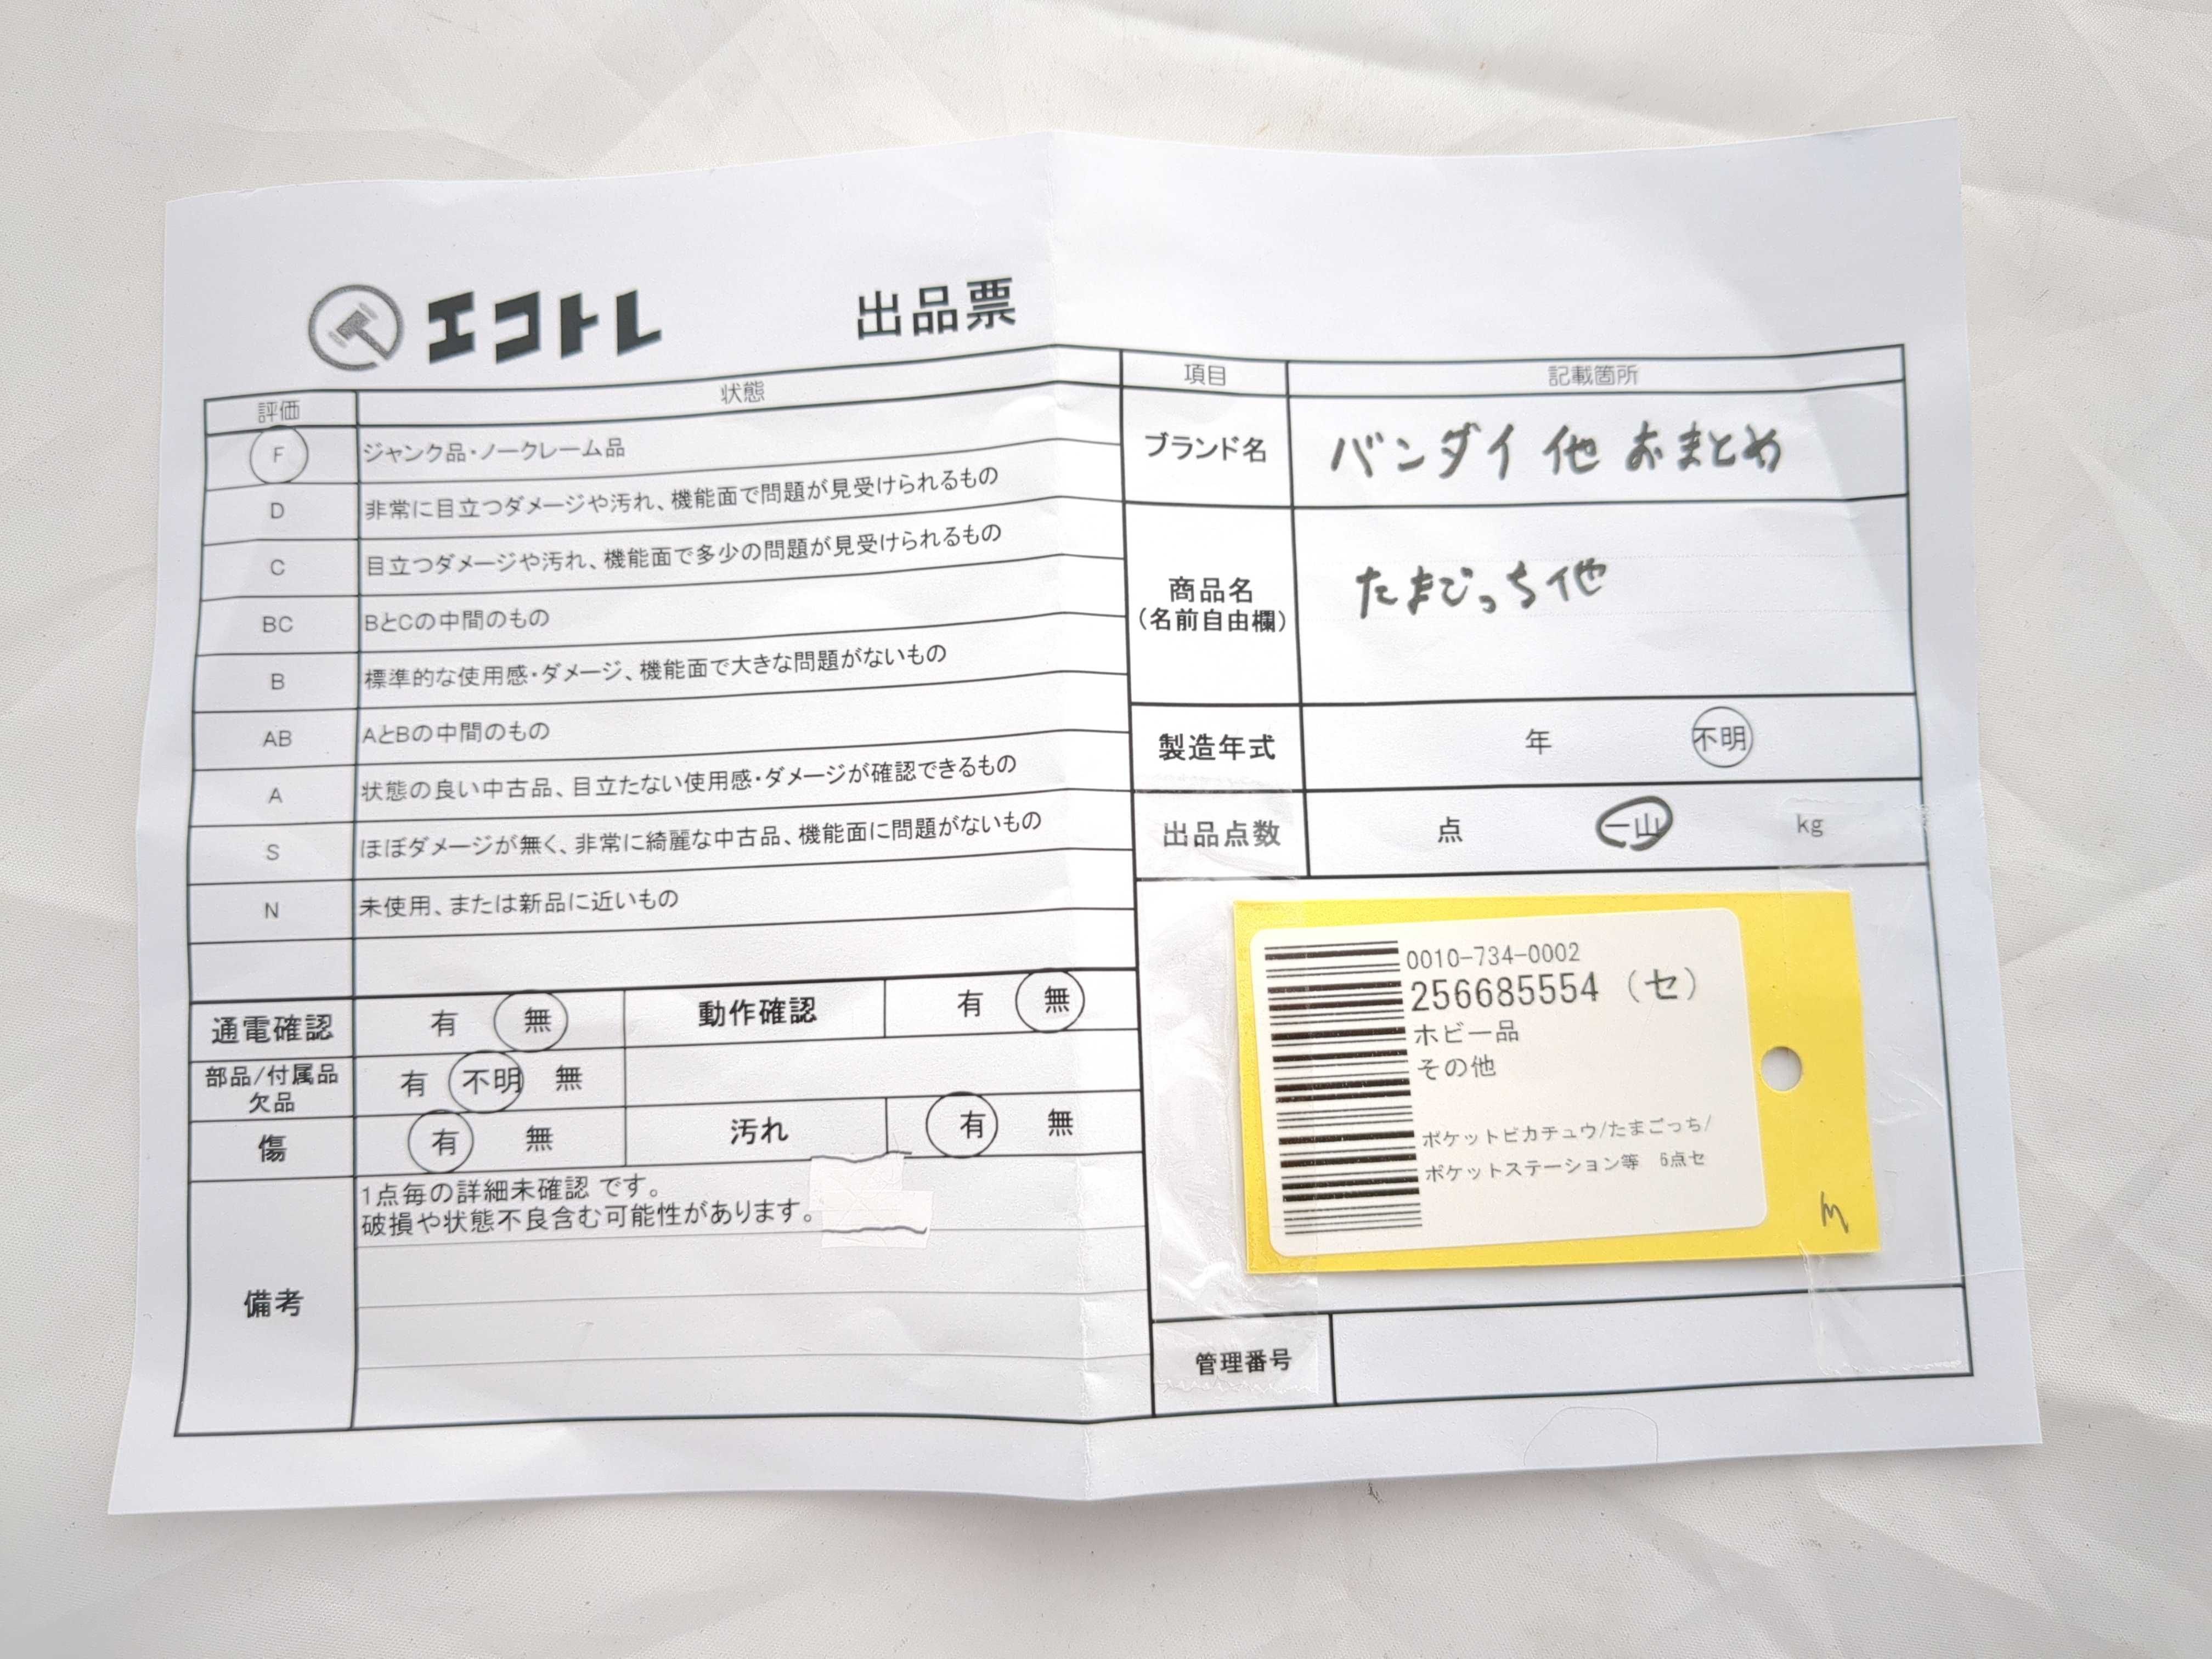 エコトレ
出品票
評価 状態
F ジャンク品・ノークレーム品
D 非常に目立つダメージや汚れ、機能面で問題が見受けられるもの
C 目立つダメージや汚れ、機能面で多少の問題が見受けられるもの
BC BとCの中間のもの
B 標準的な使用感・ダメージ、機能面で大きな問題がないもの
AB AとBの中間のもの
A 状態の良い中古品、目立たない使用感・ダメージが確認できるもの
S ほぼダメージが無く、非常に綺麗な中古品、機能面に問題がないもの
N 未使用、または新品に近いもの
通電確認 有 無 動作確認 有 無
部品/付属品
欠品 有 不明 無
傷 有 無 汚れ 有 無
備考
1点毎の詳細未確認 です。
破損や状態不良含む可能性があります。
項目 記載箇所
ブランド名 バンダイ 他 おまとめ
商品名
(名前自由欄) たまごっち他
製造年式 年 不明
出品点数 点 一山 kg
0010-734-0002
256685554 (セ)
ホビー品
その他
ポケットピカチュウ/たまごっち/
ポケットステーション等 6点セ
管理番号